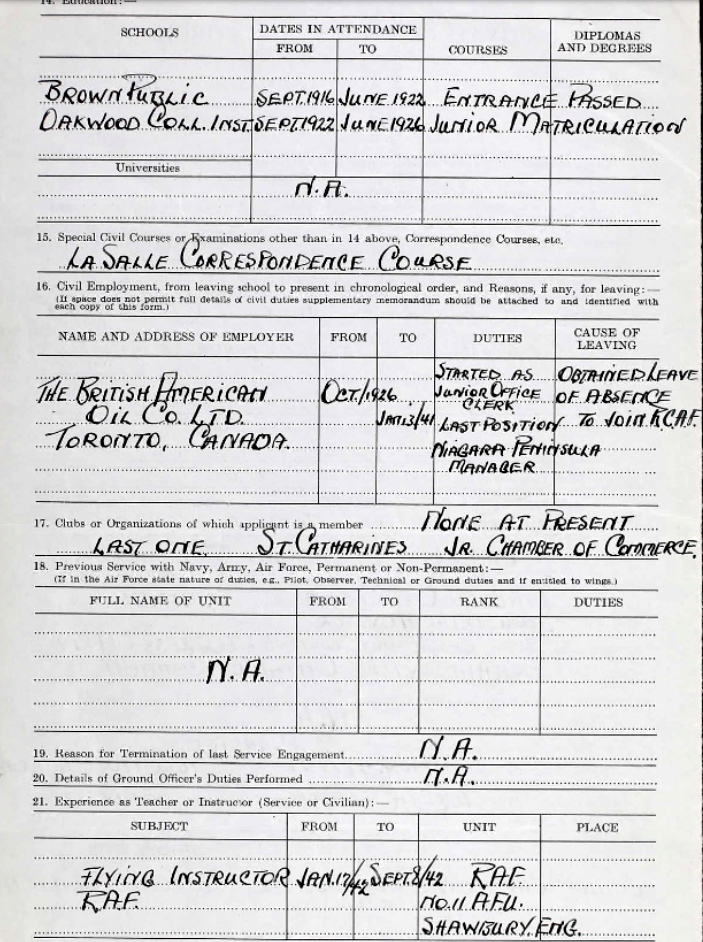 14. Education:—
SCHOOLS DATES IN ATTENDANCE COURSES DIPLOMAS AND DEGREES
FROM TO
BROWN PUBLIC SEPT.1916 JUNE 1922 ENTRANCE PASSED
OAKWOOD COLL. INST SEPT.1922 JUNE 1926 JUNIOR MATRICULATION
Universities
N.A.
15. Special Civil Courses or Examinations other than in 14 above, Correspondence Courses, etc.
LA SALLE CORRESPONDENCE COURSE
16. Civil Employment, from leaving school to present in chronological order, and Reasons, if any, for leaving:—
(If space does not permit full details of civil duties supplementary memorandum should be attached to and identified with
each copy of this form.)
NAME AND ADDRESS OF EMPLOYER FROM TO DUTIES CAUSE OF LEAVING
STARTED AS OBTAINED LEAVE
THE BRITISH AMERICAN OCT/1926 JUNIOR OFFICE OF ABSENCE
CLERK
OIL CO. LTD. JAN.13/41 LAST POSITION TO JOIN R.C.A.F.
TORONTO, CANADA. NIAGARA PENINSULA
MANAGER
17. Clubs or Organizations of which applicant is a member NONE AT PRESENT
LAST ONE ST. CATHARINES JR. CHAMBER OF COMMERCE.
18. Previous Service with Navy, Army, Air Force, Permanent or Non-Permanent:—
(If in the Air Force state nature of duties, e.g., Pilot, Observer, Technical or Ground duties and if entitled to wings.)
FULL NAME OF UNIT FROM TO RANK DUTIES
N.A.
19. Reason for Termination of last Service Engagement N.A.
20. Details of Ground Officer's Duties Performed N.A.
21. Experience as Teacher or Instructor (Service or Civilian):—
SUBJECT FROM TO UNIT PLACE
FLYING INSTRUCTOR JAN.17/42 SEPT.8/42 RAF.
R.A.F. NO.11 A.F.U.
SHAWBURY. ENG.